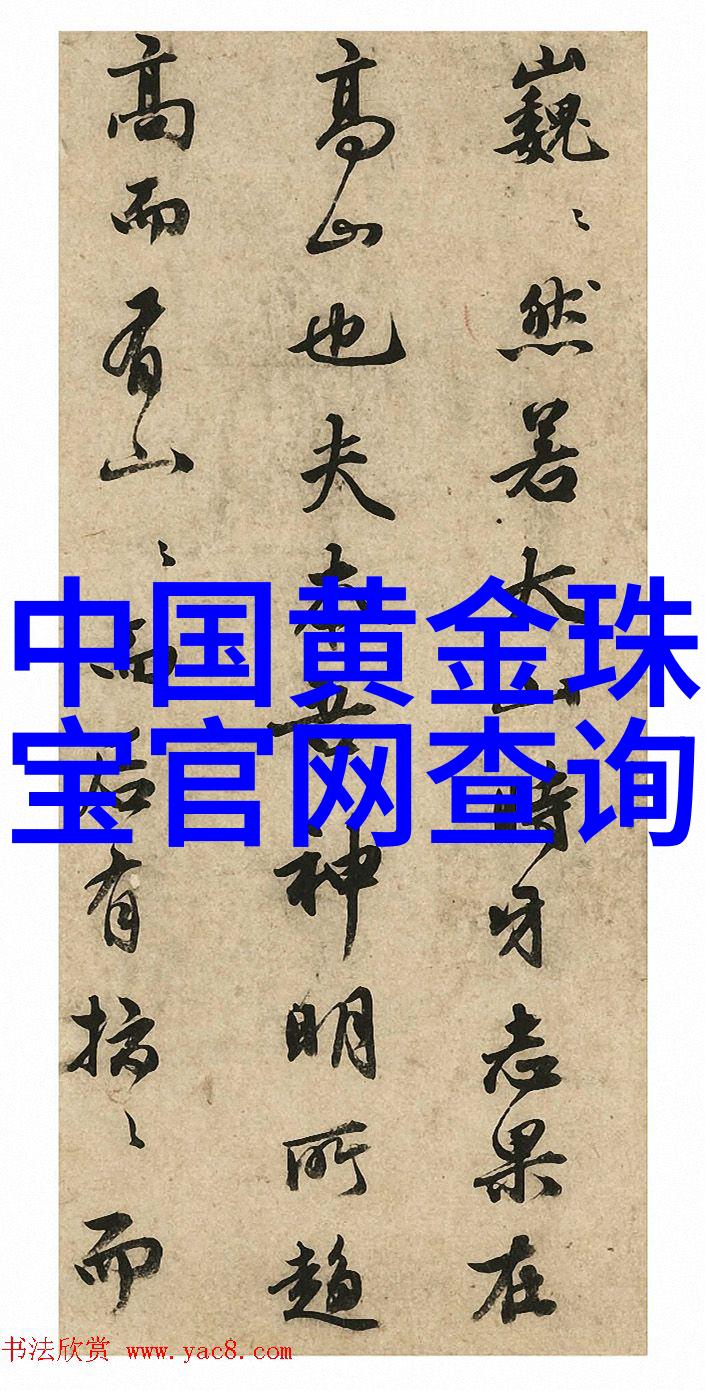 中国黄金珠
宝官网查询
巍〻然若大山時牙志果在
高山也夫神明所趨
高而有山〻而后有〻而
书法欣赏 www.yac8.com